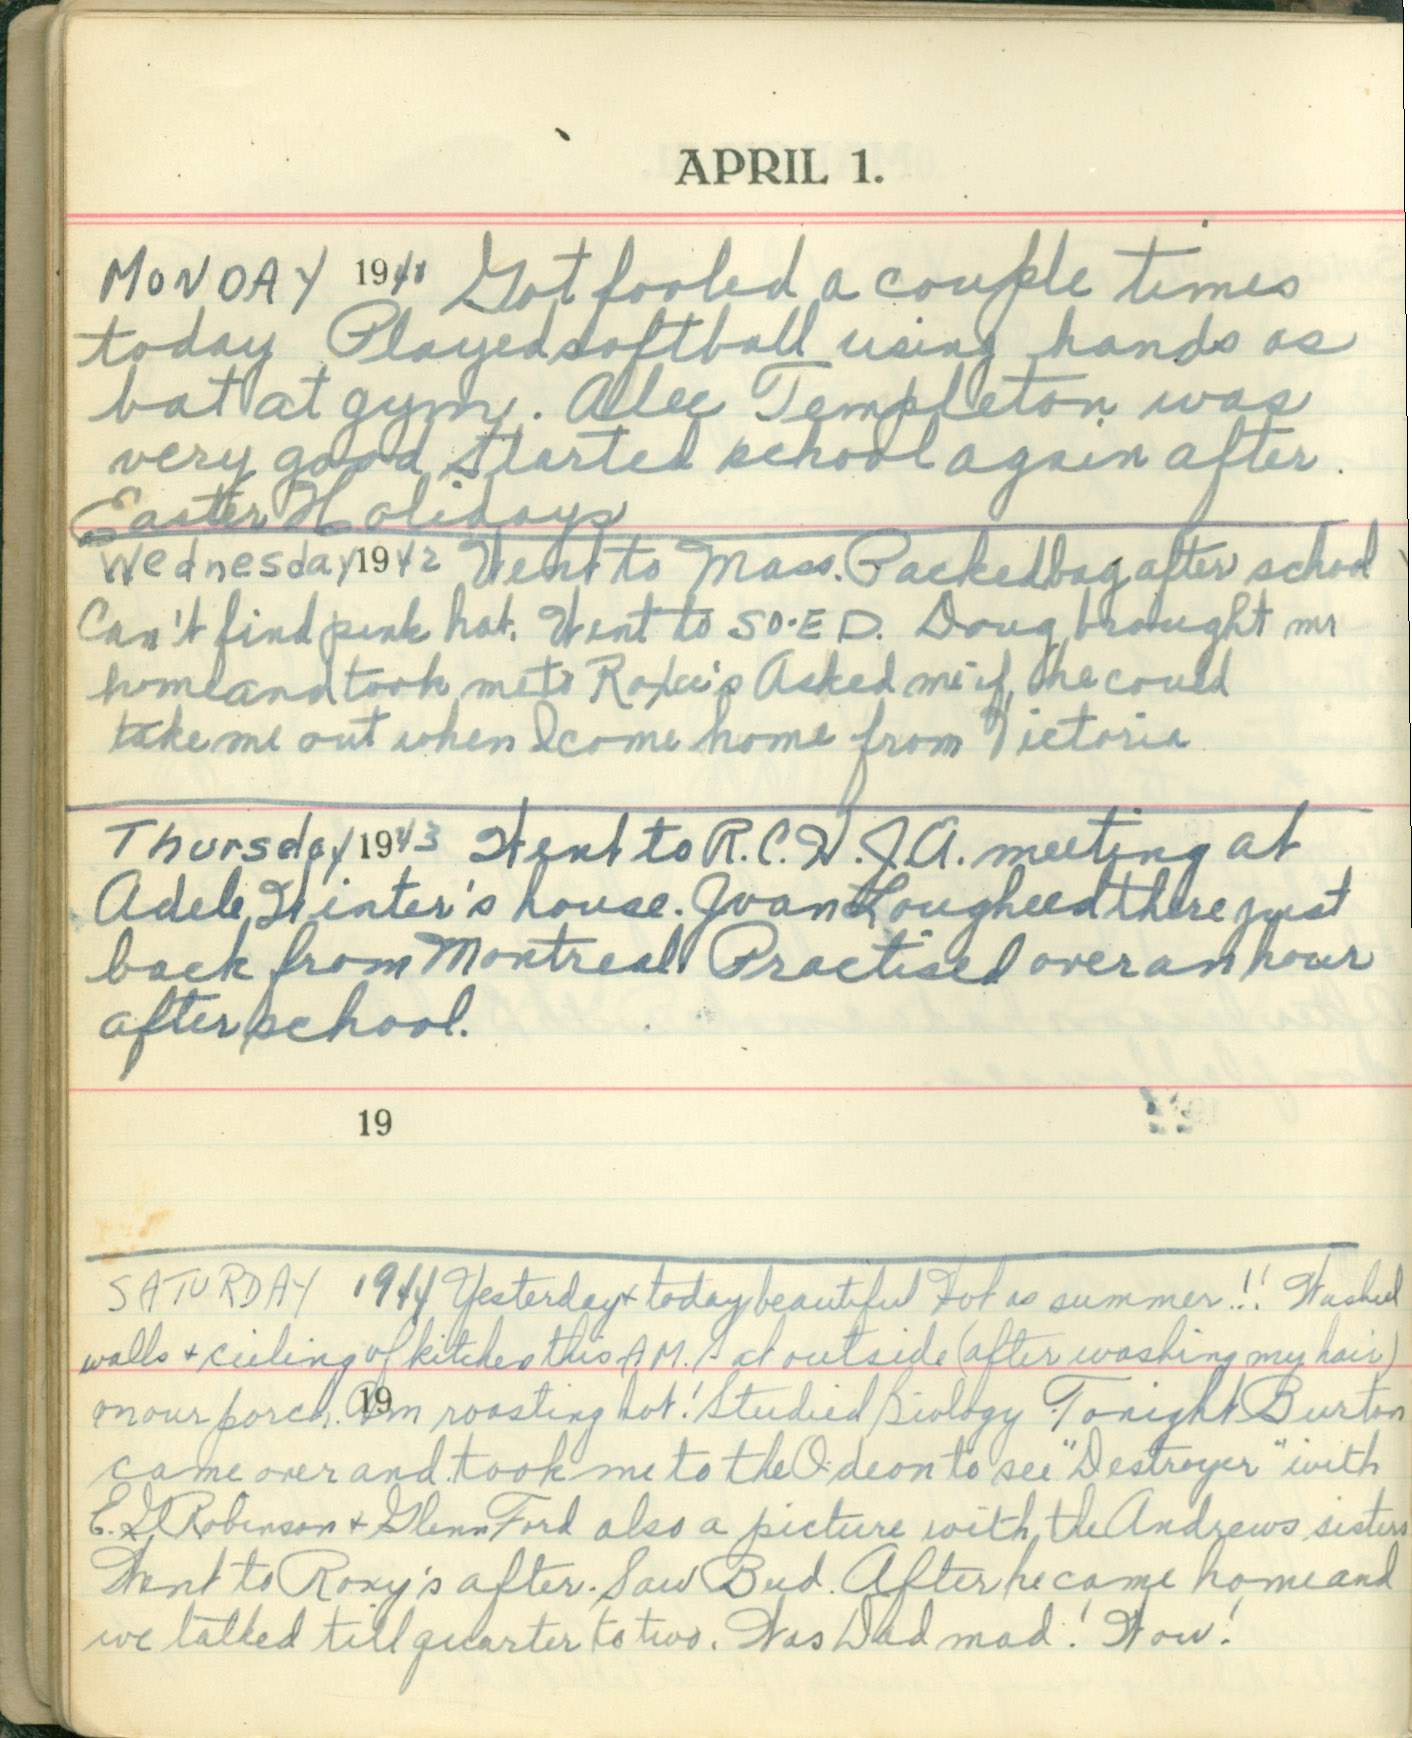 APRIL 1.
MONDAY 1940 Got fooled a couple times
today Played softball using hands as
bat at gym. Alec Templeton was
very good Started school again after.
Easter Holidays
Wednesday 1942 Went to Mass. Packed bag after school
Can't find pink hat. Went to SO.ED. Doug brought me
home and took me to Roxie's Asked me if he could
take me out when I come home from Victoria
Thursday 1943 Went to R.C.W.J.A. meeting at
Adele Winter's house. Joan Lougheed there just
back from Montreal Practised over an hour
after school.
19
SATURDAY 1944 Yesterday + today beautiful Hot as summer!! Washed
walls + ceiling of kitchen this A.M. Sat outside (after washing my hair)
on our porch. 19 Am roasting hot! Studied Biology Tonight Burton
came over and took me to the Odeon to see "Destroyer" with
E.G. Robinson + Glenn Ford also a picture with the Andrews sisters
Went to Roxy's after. Saw Bud. After he came home and
we talked till quarter to two. Was Dad mad! Wow!